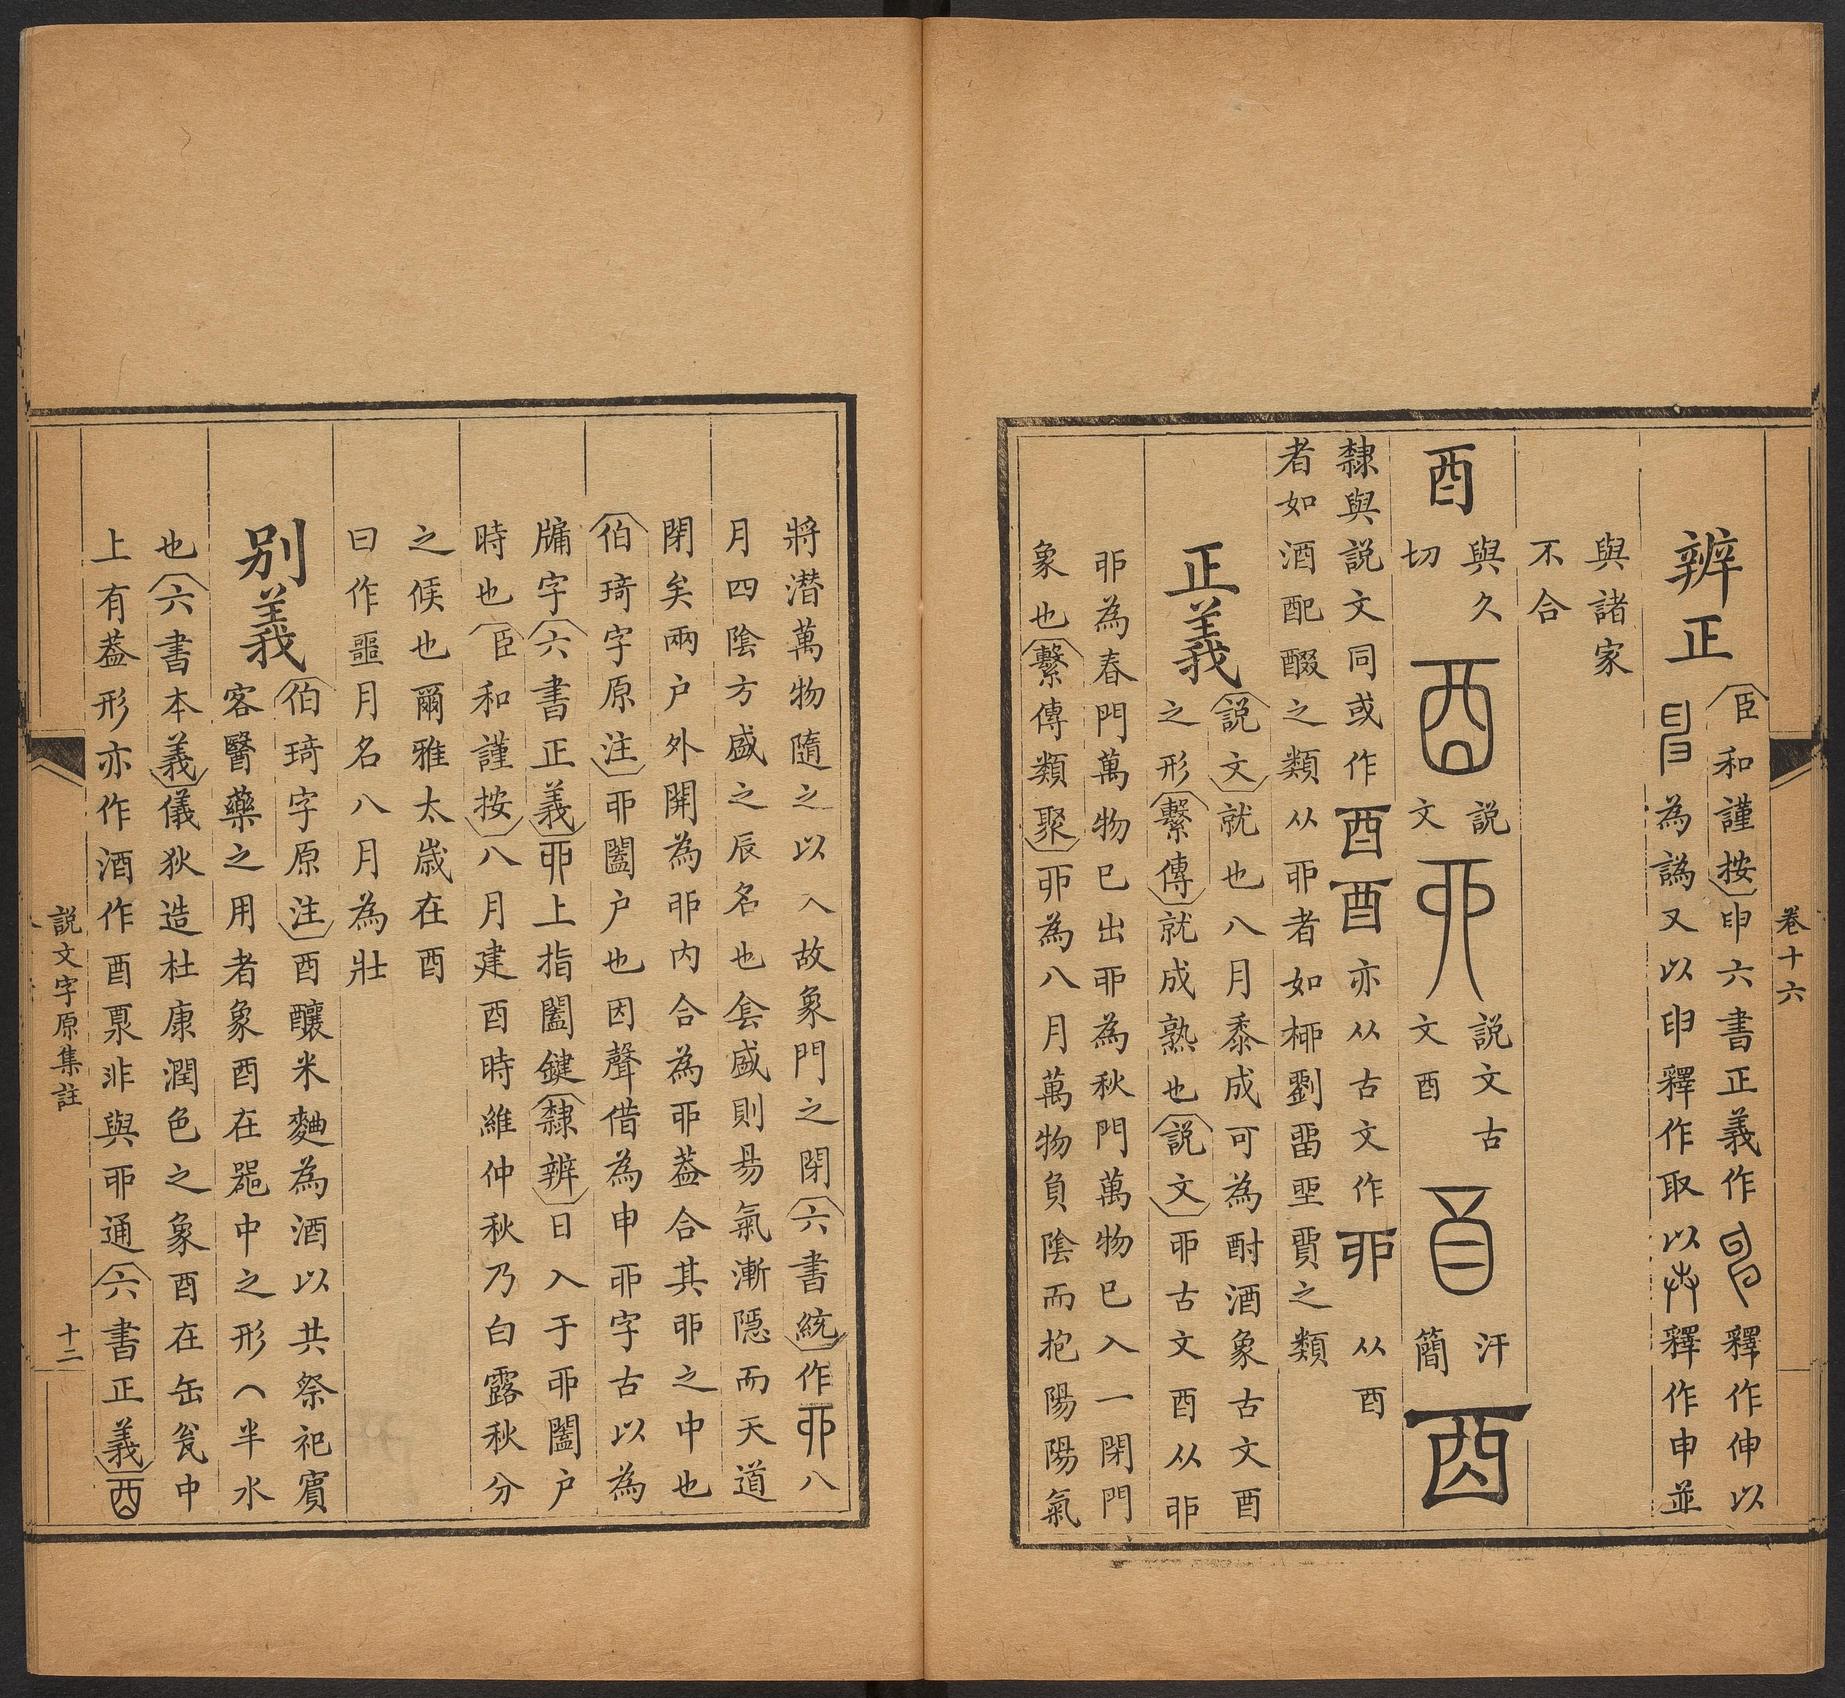 卷十六
辨正
臣和謹按申六書正義作釋作伸以
為譌又以𦥔釋作取以釋作申並
與諸家
不合
酉
與久
切
説
文
説文古
文酉
汗
簡
隸與説文同或作酉酉亦从古文作丣从酉
者如酒配醊之類从丣者如桺劉畱垔貿之類
正義
説文就也八月黍成可為酎酒象古文酉
之形繫傳就成熟也説文丣古文酉从丣
丣為春門萬物已出丣為秋門萬物已入一閉門
象也繫傳類聚丣為八月萬物負陰而抱陽陽氣
將潜萬物隨之以入故象門之閉六書統作丣八
月四陰方盛之辰名也侌盛則昜氣漸隱而天道
閉矣兩户外開為丣内合為丣葢合其丣之中也
伯琦字原注丣闔户也因聲借為申丣字古以為
牗字六書正義丣上指闔鍵隸辨日入于丣闔户
時也臣和謹按八月建酉時維仲秋乃白露秋分
之候也爾雅太歲在酉
曰作噩月名八月為壯
别義
伯琦字原注酉釀米麯為酒以共祭祀賓
客醫藥之用者象酉在噐中之形𠆢半水
也六書本義儀狄造杜康潤色之象酉在缶瓮中
上有葢形亦作酒作酉㮚非與丣通六書正義
説文字原集註
十二